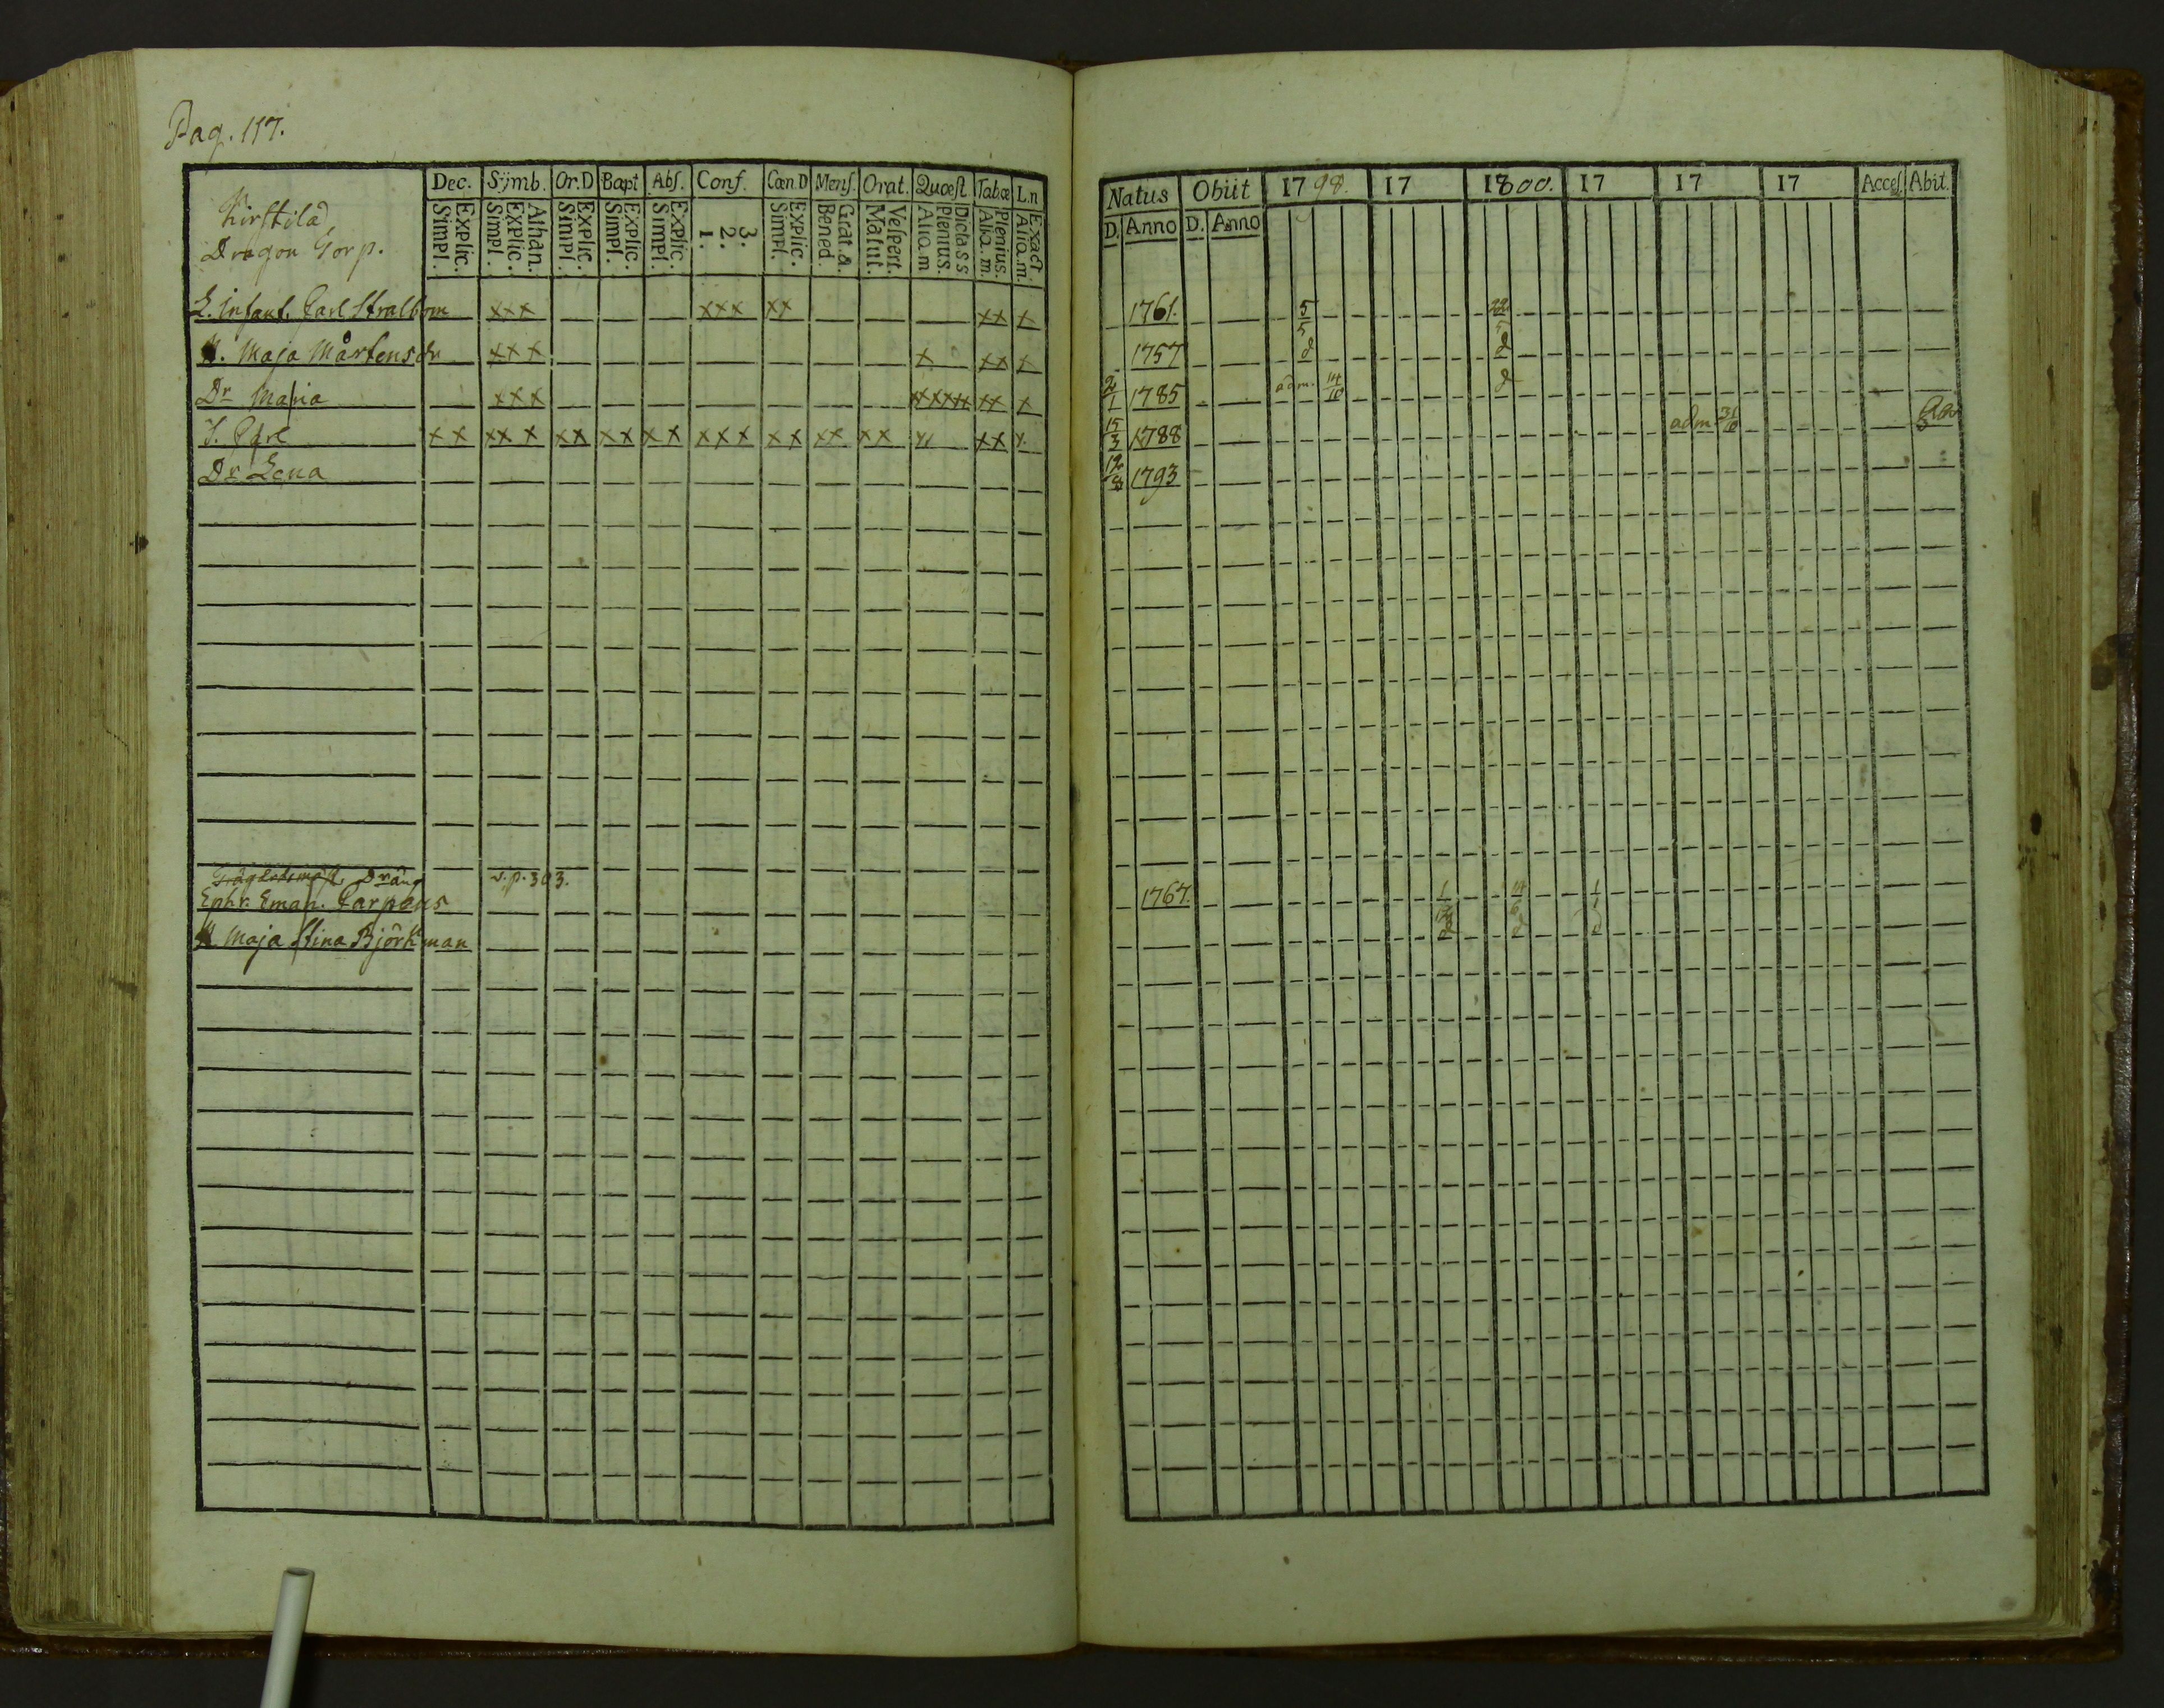 Pag. 117.
Kirstila
Dragon Torp.
Dec. Symb. Or.D Bapt Abs. Conf. Cœn.D Mens. Orat. Quœst Tabœ L.n
Simpl. Explic. Simpl. Explic. Athan. Simpl. Explic. Simpl. Explic. Simpl. Explic. 1. 2. 3. Simpl. Explic. Bened. Grat.a. Matut. Vespert. Aliq.m Plenius. Dictass Aliq.m. Plenius. Aliq.m. Exact.
L. Infant. Carl Stralbom xxx xxx xx xx x
H. Maja Mårtensdr xxx x xx x
Dr Maria xxx xxxxx xx x
S. Carl xx xxx xx xx xx xxx xx xx xx xx xx x
Dr Lena
Dräng v.p. 303.
Ephr. Eman. Carpens
H. Maja Stina Björkman
Natus Obiit 1798. 17 1800. 17 17 17 Acces. Abit.
D. Anno D. Anno
1761. 5/5 22/5
1757 d d
2/1 1785 adm. 14/10 d
15/3 1788 adm 31/10
12/8 1793
1767. 1/12 14/6 1/1
d d d